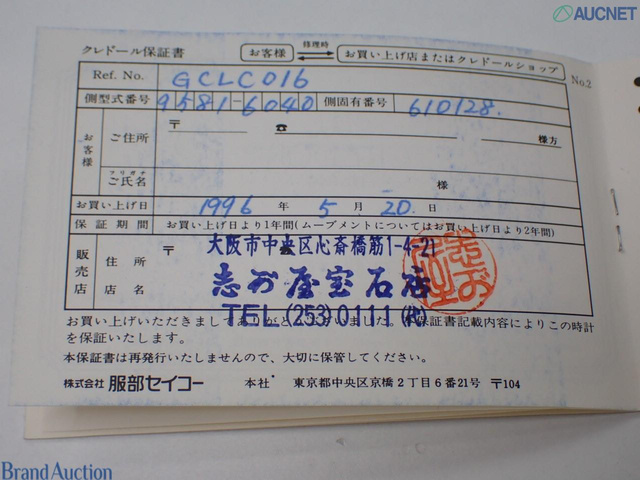 AUCNET
クレドール保証書 お客様 修理時 お買い上げ店またはクレドールショップ
No.2
Ref. No. GCLC016
側型式番号 9581-6040 側固有番号 610128.
お客様
ご住所 〒 ☎ 様方
フリガナ
ご氏名 様
お買い上げ日 1996 年 5 月 20 日
保証期間 お買い上げ日より1年間(ムーブメントについてはお買い上げ日より2年間)
販売店
住所 〒
大阪市中央区心斎橋筋1-4-21
店名
志がお屋宝石店
TEL (253) 0111 (代)
お買い上げいただきましてありがとうございました。本保証書記載内容によりこの時計
を保証いたします。
本保証書は再発行いたしませんので、大切に保管してください。
株式会社 服部セイコー 本社 東京都中央区京橋2丁目6番21号 〒104
Brand Auction